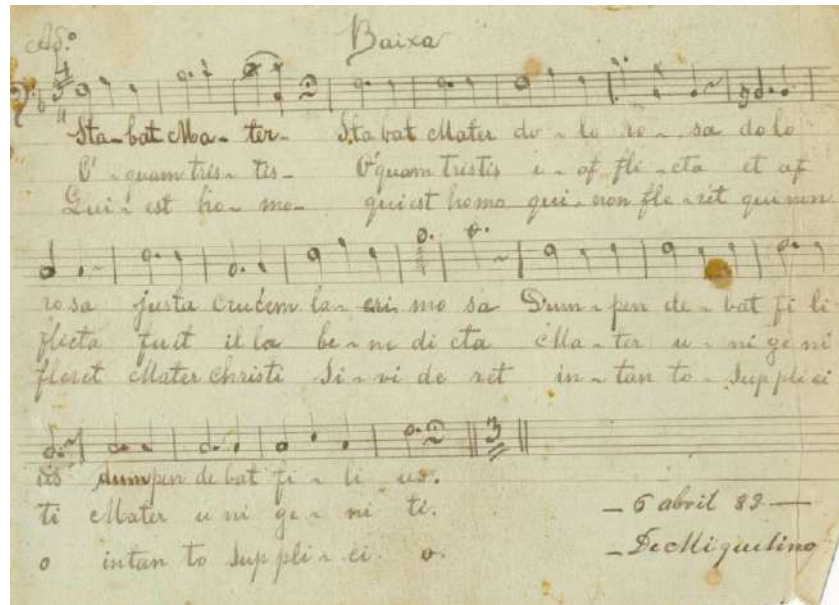 Ad.º Baixa
Sta-bat Ma-ter- Sta bat Mater do-lo ro-sa dolo
O'-quam tris-tis- O'quam tristis e-af fli-cta et af
Qui-est ho-mo- qui est homo qui-non fle-ret qui non
ro sa justa crucem la-cri mo sa Dum-pen de-bat fi li
flicta fuit il la be-ne di cta Ma-ter u-ni ge ni
fleret Mater Christi Si-vi de ret in-tan to-Suppli ci
us dum pen de bat fi-li us.
ti Mater u ni ge-ni ti.
o in tan to Suppli-ci o.
3
- 6 abril 89 -
- De Miguelino